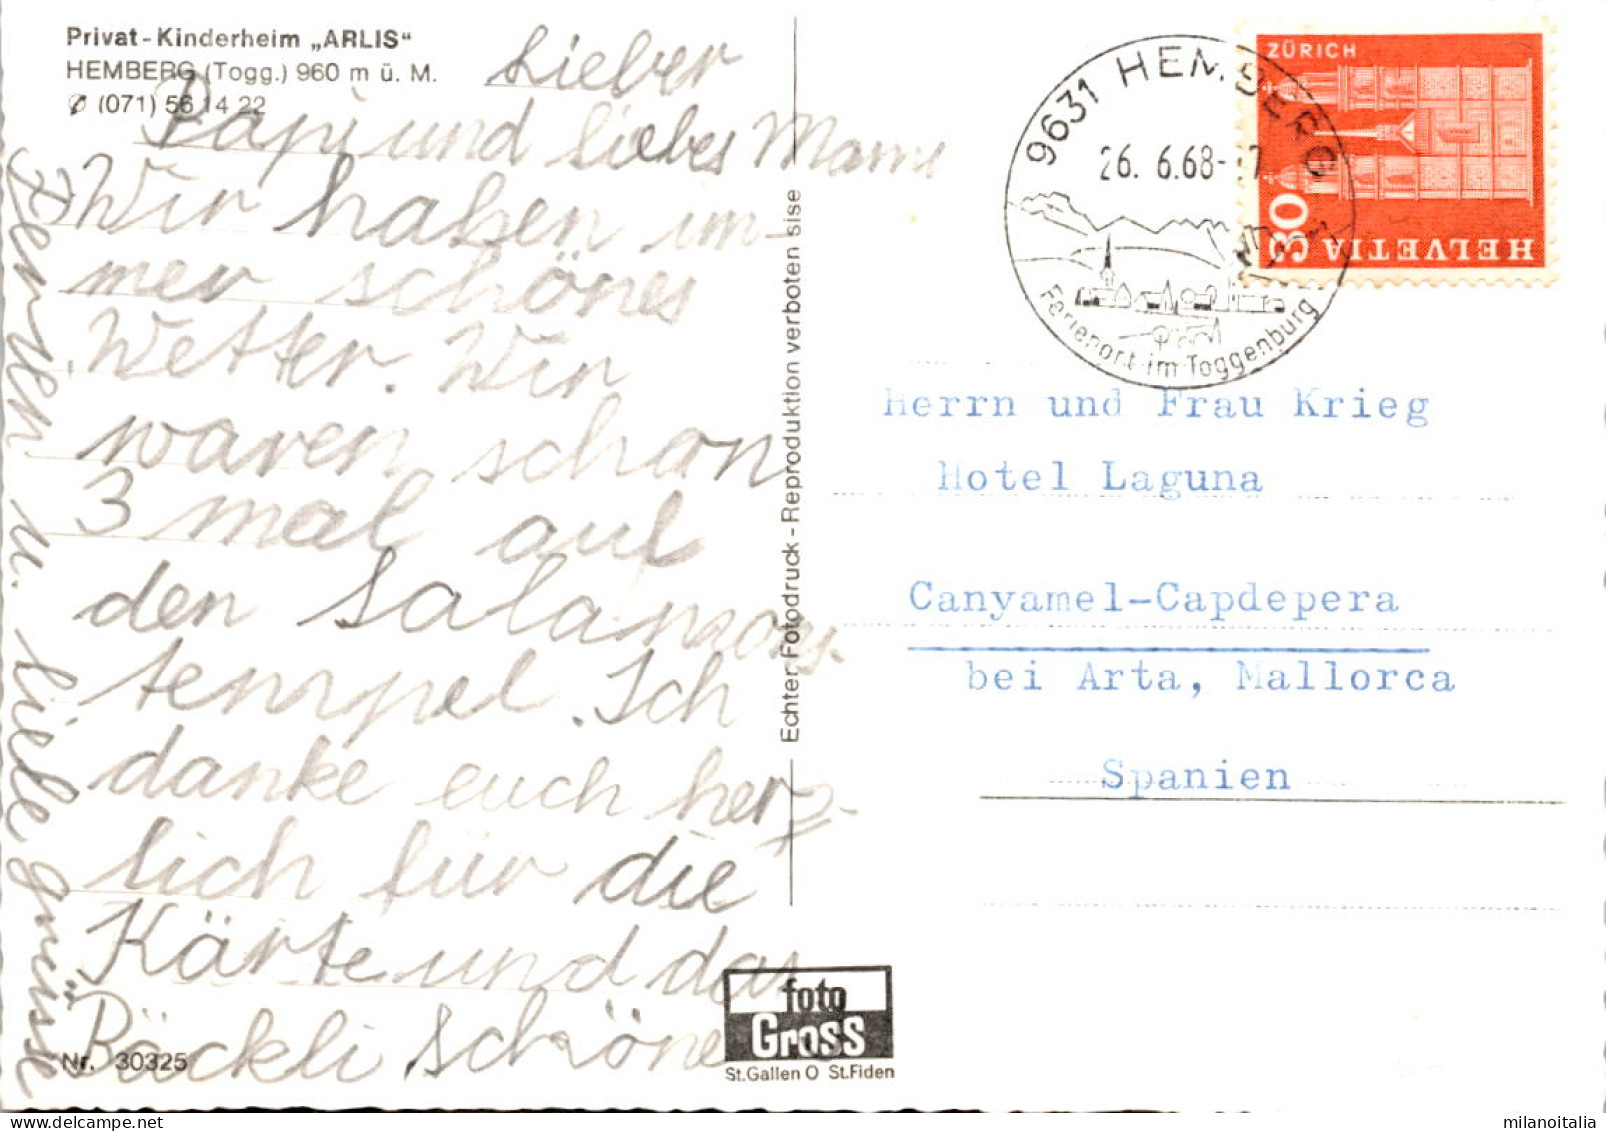 Privat-Kinderheim „ARLIS“
HEMBERG (Togg.) 960 m ü. M.
✆ (071) 56 14 22
Lieber
Papi und liebes Mami
Wir haben im-
mer schönes
Wetter. Wir
waren schon
3 mal auf
den Salamons-
tempel. Ich
danke euch herz-
lich für die
Kärte und das
Päckli schöne
Ferien u. liele Grüsse
Nr. 30325
Echter Fotodruck - Reproduktion verboten sise
foto
Gross
St.Gallen O St.Fiden
9631 HEMBERG
26. 6.68-17
Ferienort im Toggenburg
ZÜRICH
30
HELVETIA
Herrn und Frau Krieg
Hotel Laguna
Canyamel-Capdepera
bei Arta, Mallorca
Spanien
milanoitalia